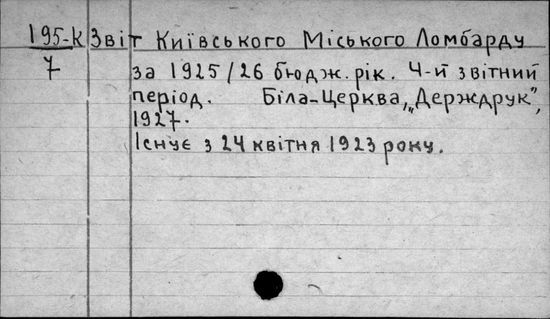 195-К Звіт Київського Міського Ломбарду
7 за 1925/26 бюдж. рік. 4-й звітний
період. Біла-Церква, „Держдрук",
1927.
Існує з 24 квітня 1923 року.